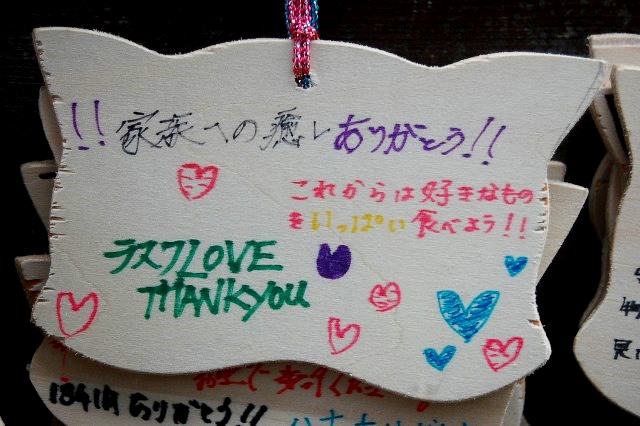 !!家族への癒しありがとう!!
これからは好きなもの
をいっぱい食べよう!!
ラスクLOVE
THANKYOU
ありがとう!!